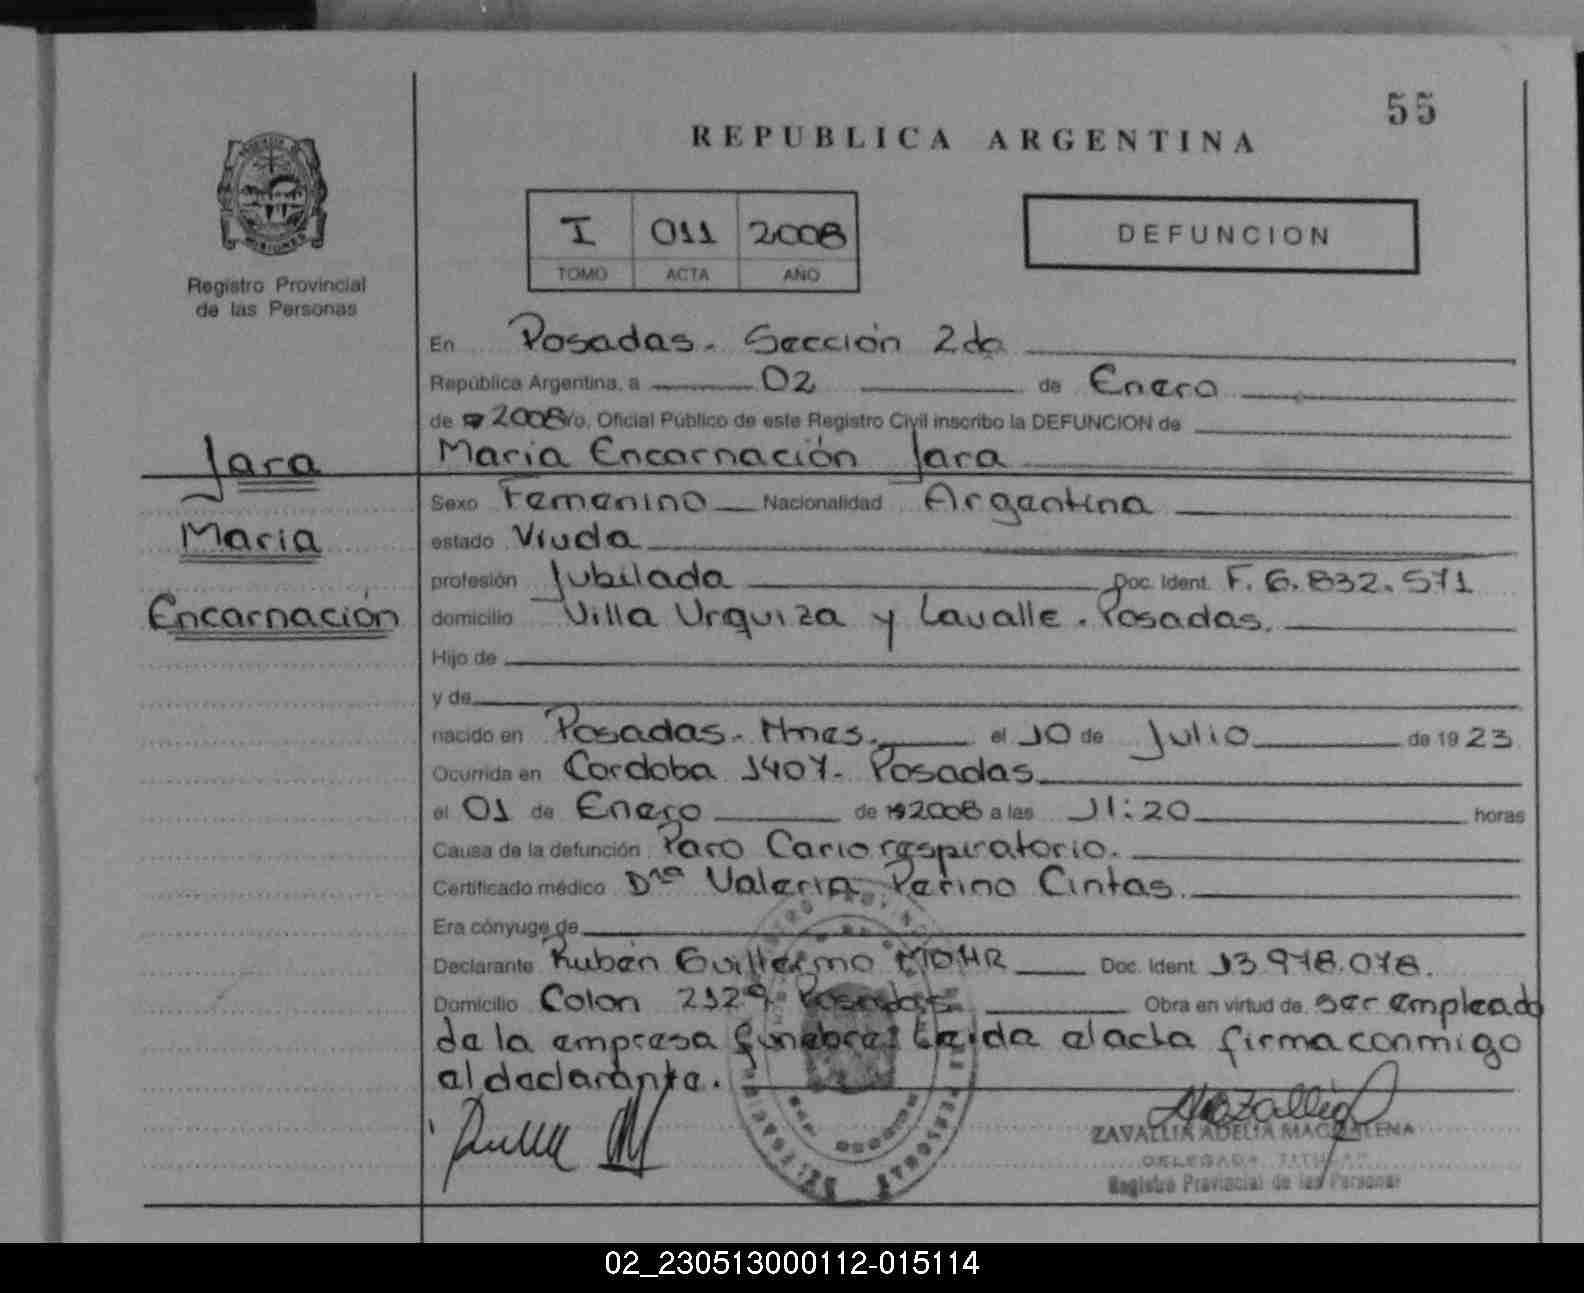 55
REPUBLICA ARGENTINA
I 011 2008
TOMO ACTA AÑO
DEFUNCION
MISIONES
Registro Provincial
de las Personas
En Posadas. Sección 2da
República Argentina, a 02 de Enero
de 2008 yo, Oficial Público de este Registro Civil inscribo la DEFUNCION de
Maria Encarnación Jara
Jara
Maria
Encarnación
Sexo Femenino Nacionalidad Argentina
estado Viuda
profesión Jubilada Doc. Ident. F. 6.832.571
domicilio Villa Urquiza y Lavalle. Posadas.
Hijo de
y de
nacido en Posadas. Mnes. el 10 de Julio de 1923
Ocurrida en Cordoba 1407. Posadas
el 01 de Enero de 2008 a las 11:20 horas
Causa de la defunción Paro Cariorespiratorio.
Certificado médico Dra Valeria Perino Cintas.
Era cónyuge de
Declarante Ruben Guillermo MOHR Doc. Ident. 13.978.078.
Domicilio Colon 2129 Posadas Obra en virtud de ser empleado
de la empresa funebre leida el acta firma conmigo
el declarante.
ZAVALLIA ADELIA MAGDALENA
DELEGADA TITULAR
Registro Provincial de las Personas
02_230513000112-015114